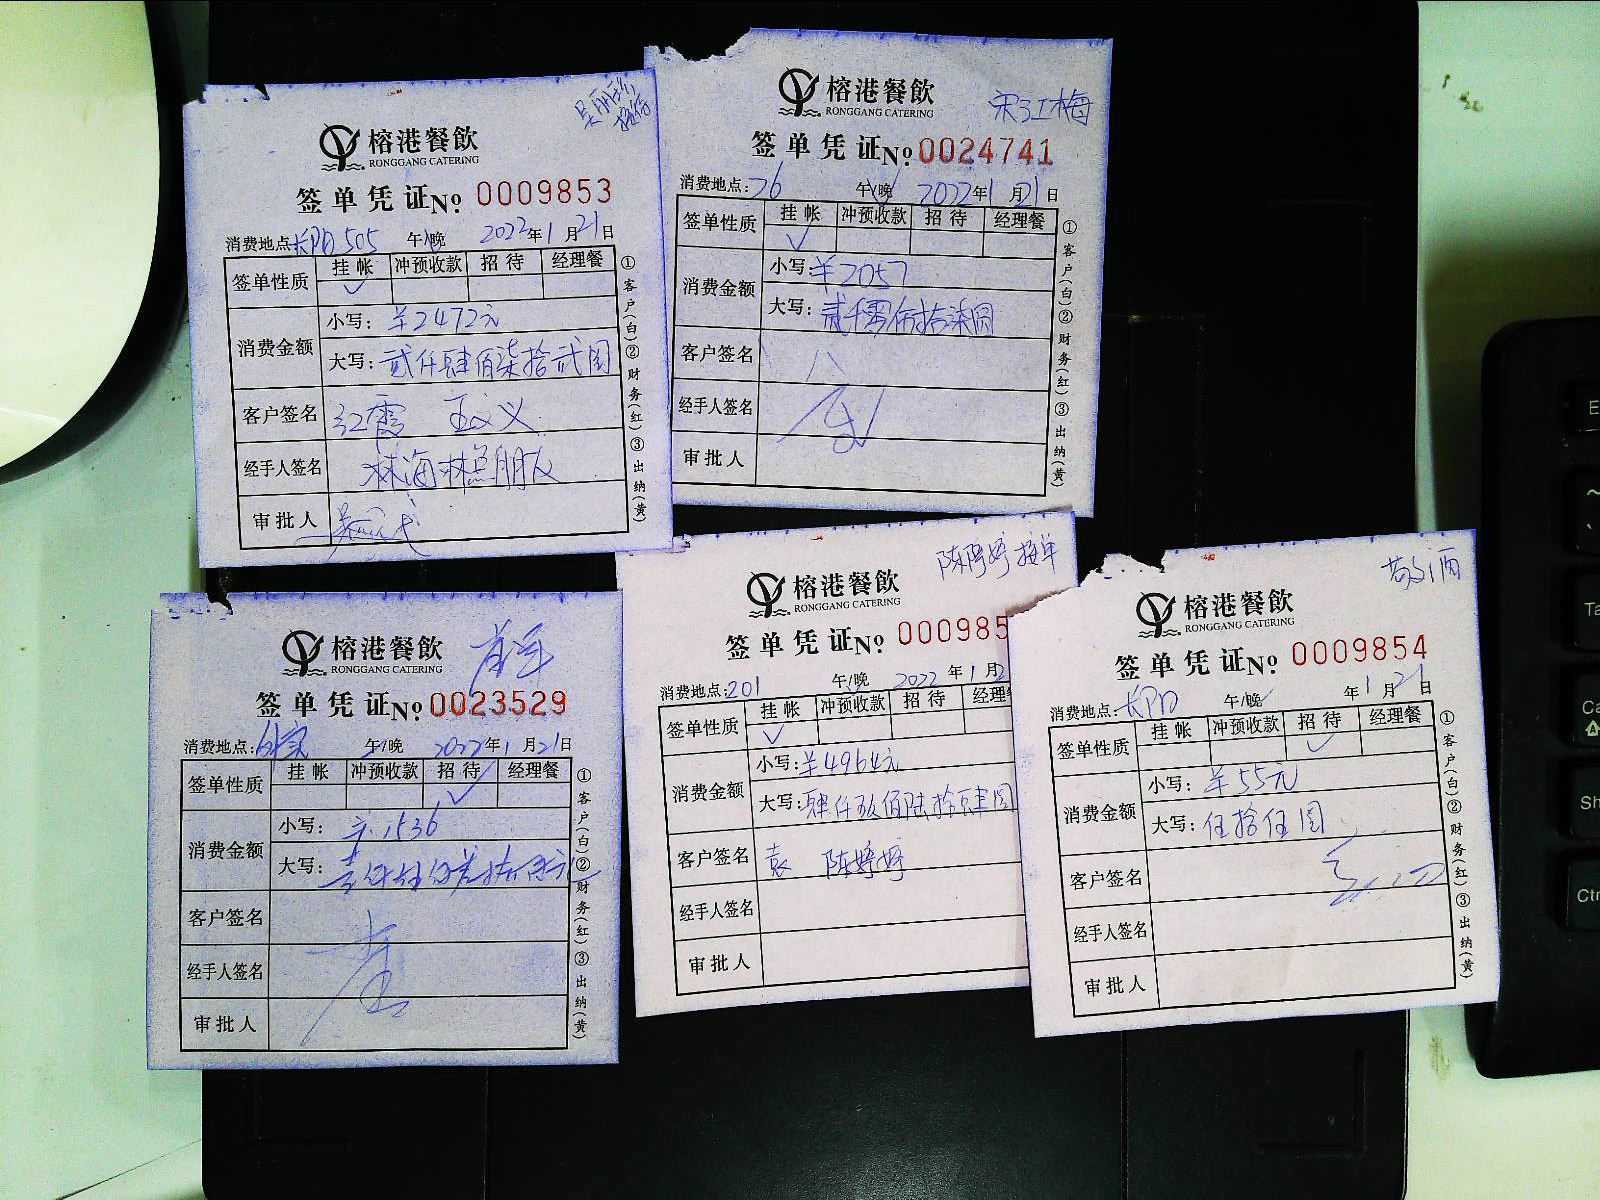 榕港餐飲
RONGGANG CATERING
签单凭证 No 0009853
消费地点: 505 午/晚 2022年1月21日
签单性质 挂帐 冲预收款 招待 经理餐
消费金额
小写: ¥2472元
大写: 贰仟肆佰柒拾贰圆
客户签名 红霞
经手人签名 林海 朋友
审批人
①客户(白)②财务(红)③出纳(黄)
宋红梅
榕港餐飲
RONGGANG CATERING
签单凭证 No 0024741
消费地点: 26 午/晚 2022年1月21日
签单性质 挂帐 冲预收款 招待 经理餐
消费金额
小写: ¥2057
大写: 贰仟零佰拾柒圆
客户签名
经手人签名
审批人
①客户(白)②财务(红)③出纳(黄)
榕港餐飲
RONGGANG CATERING
签单凭证 No 0023529
消费地点: 午/晚 2022年1月21日
签单性质 挂帐 冲预收款 招待 经理餐
消费金额
小写: 1536
大写:
客户签名
经手人签名
审批人
①客户(白)②财务(红)③出纳(黄)
陈婷婷接单
榕港餐飲
RONGGANG CATERING
签单凭证 No 000985
消费地点: 201 午/晚 2022年1月2
签单性质 挂帐 冲预收款 招待 经理
消费金额
小写: ¥4964元
大写: 肆仟玖佰陆拾肆圆
客户签名 袁 陈婷婷
经手人签名
审批人
敬酒
榕港餐飲
RONGGANG CATERING
签单凭证 No 0009854
消费地点: 午/晚 年1月21日
签单性质 挂帐 冲预收款 招待 经理餐
消费金额
小写: ¥55元
大写: 伍拾伍圆
客户签名
经手人签名
审批人
①客户(白)②财务(红)③出纳(黄)